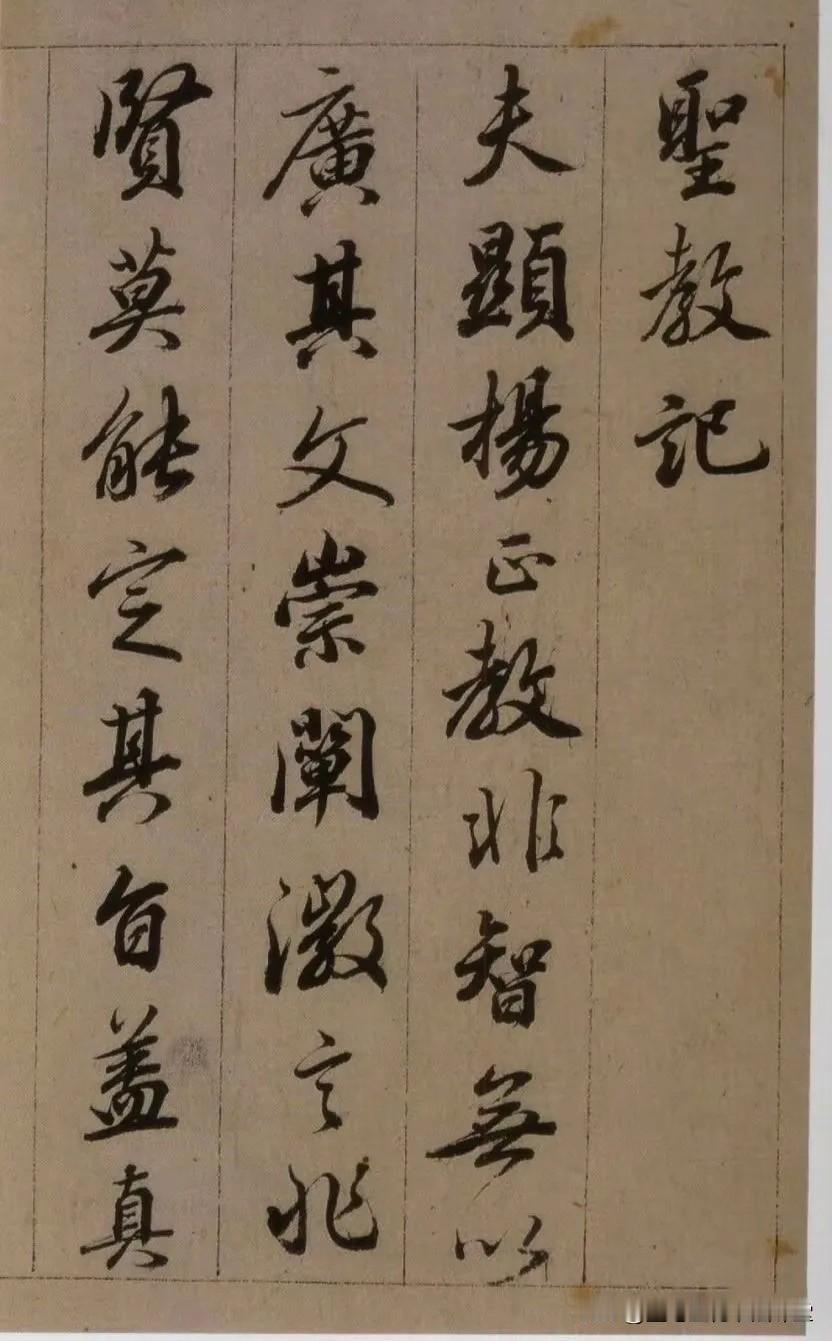 聖教記
夫顯揚正教非智無以
廣其文崇闡微言非
賢莫能定其旨蓋真